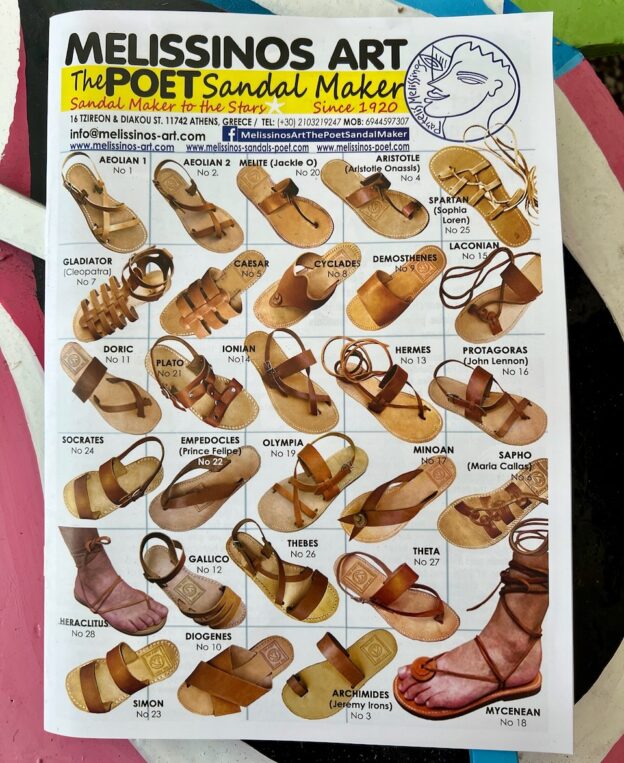 MELISSINOS ART
The POET Sandal Maker
Sandal Maker to the Stars Since 1920
16 TZIREON & DIAKOU ST. 11742 ATHENS, GREECE / TEL: (+30) 2103219247 MOB: 6944597307
info@melissinos-art.com f MelissinosArtThePoetSandalMaker
www.melissinos-art.com www.melissinos-sandals-poet.com www.melissinos-poet.com
Pantelis Melissinos
AEOLIAN 1
No 1
AEOLIAN 2
No 2.
MELITE (Jackie O)
No 20
ARISTOTLE
(Aristotle Onassis)
No 4
SPARTAN
(Sophia
Loren)
No 25
GLADIATOR
(Cleopatra)
No 7
CAESAR
No 5
CYCLADES
No 8
DEMOSTHENES
No 9
LACONIAN
No 15
DORIC
No 11
PLATO
No 21
IONIAN
No14
HERMES
No 13
PROTAGORAS
(John Lennon)
No 16
SOCRATES
No 24
EMPEDOCLES
(Prince Felipe)
No 22
OLYMPIA
No 19
MINOAN
No 17
SAPHO
(Maria Callas)
No 6
HERACLITUS
No 28
GALLICO
No 12
THEBES
No 26
THETA
No 27
SIMON
No 23
DIOGENES
No 10
ARCHIMIDES
(Jeremy Irons)
No 3
MYCENEAN
No 18